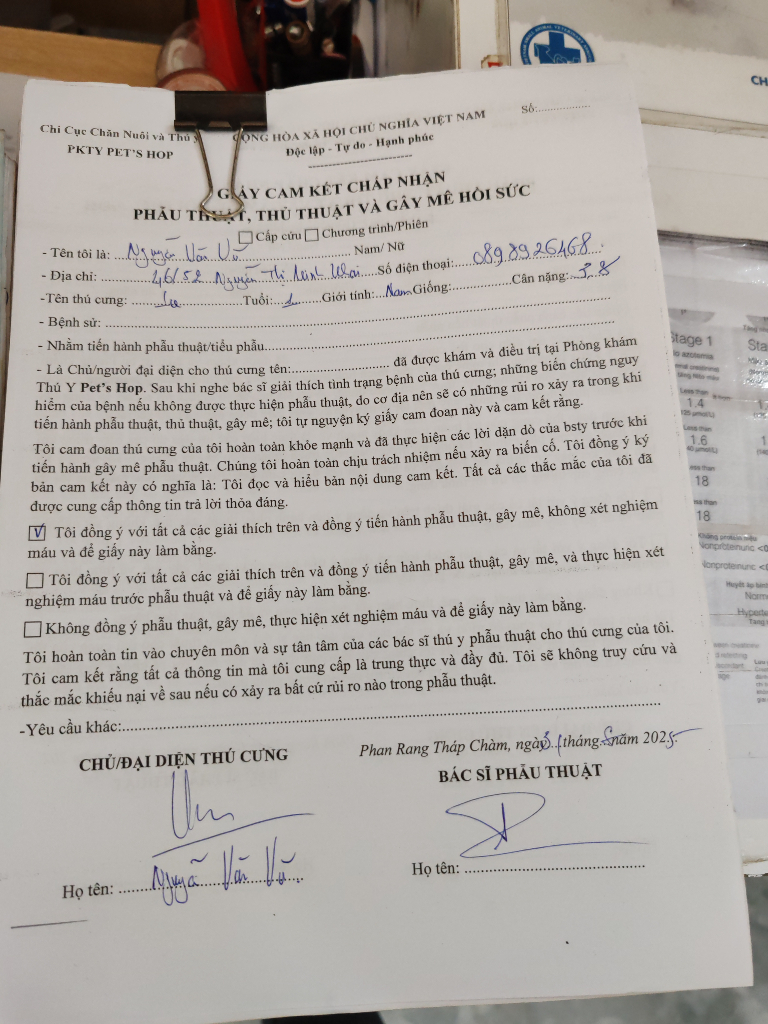 CH
Số:................
Chi Cục Chăn Nuôi và Thú y
CỘNG HÒA XÃ HỘI CHỦ NGHĨA VIỆT NAM
PKTY PET'S HOP
Độc lập - Tự do - Hạnh phúc
GIẤY CAM KẾT CHẤP NHẬN
PHẪU THUẬT, THỦ THUẬT VÀ GÂY MÊ HỒI SỨC
Cấp cứu Chương trình/Phiên
- Tên tôi là: Nguyễn Văn Vũ Nam/ Nữ
- Địa chỉ: 46/52 Nguyễn Thị Minh Khai Số điện thoại: 0898926468
-Tên thú cưng: Tuổi: Giới tính: Nam Giống: Cân nặng: 3,8
- Bệnh sử:
- Nhằm tiến hành phẫu thuật/tiểu phẫu
- Là Chủ/người đại diện cho thú cưng tên: đã được khám và điều trị tại Phòng khám
Thú Y Pet's Hop. Sau khi nghe bác sĩ giải thích tình trạng bệnh của thú cưng; những biến chứng nguy
hiểm của bệnh nếu không được thực hiện phẫu thuật, do cơ địa nên sẽ có những rủi ro xảy ra trong khi
tiến hành phẫu thuật, thủ thuật, gây mê; tôi tự nguyện ký giấy cam đoan này và cam kết rằng.
Tôi cam đoan thú cưng của tôi hoàn toàn khỏe mạnh và đã thực hiện các lời dặn dò của bsty trước khi
tiến hành gây mê phẫu thuật. Chúng tôi hoàn toàn chịu trách nhiệm nếu xảy ra biến cố. Tôi đồng ý ký
bản cam kết này có nghĩa là: Tôi đọc và hiểu bản nội dung cam kết. Tất cả các thắc mắc của tôi đã
được cung cấp thông tin trả lời thỏa đáng.
V Tôi đồng ý với tất cả các giải thích trên và đồng ý tiến hành phẫu thuật, gây mê, không xét nghiệm
máu và để giấy này làm bằng.
Tôi đồng ý với tất cả các giải thích trên và đồng ý tiến hành phẫu thuật, gây mê, và thực hiện xét
nghiệm máu trước phẫu thuật và để giấy này làm bằng.
Không đồng ý phẫu thuật, gây mê, thực hiện xét nghiệm máu và để giấy này làm bằng.
Tôi hoàn toàn tin vào chuyên môn và sự tân tâm của các bác sĩ thú y phẫu thuật cho thú cưng của tôi.
Tôi cam kết rằng tất cả thông tin mà tôi cung cấp là trung thực và đầy đủ. Tôi sẽ không truy cứu và
thắc mắc khiếu nại về sau nếu có xảy ra bất cứ rủi ro nào trong phẫu thuật.
-Yêu cầu khác:
Phan Rang Tháp Chàm, ngày 31 tháng 5 năm 2025
CHỦ/ĐẠI DIỆN THÚ CƯNG
BÁC SĨ PHẪU THUẬT
Họ tên: Nguyễn Văn Vũ
Họ tên:
Stage 1
Sta
Less than
1.4
Less than
1.6
18
18
Nonproteinuric <0